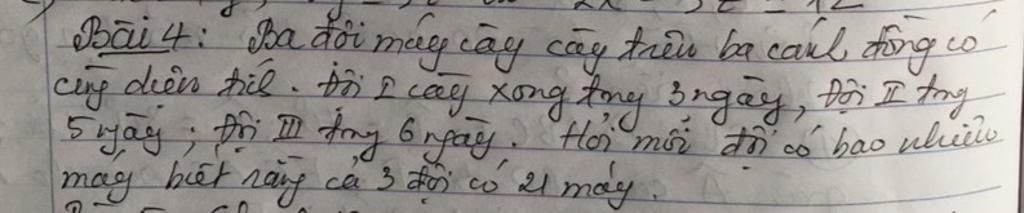 Bài 4: Ba đội máy cày cày trên ba cánh đồng có
cùng diện tích. Đội I cày xong trong 3 ngày, Đội II trong
5 ngày, Đội III trong 6 ngày. Hỏi mỗi đội có bao nhiêu
máy biết rằng cả 3 đội có 21 máy.